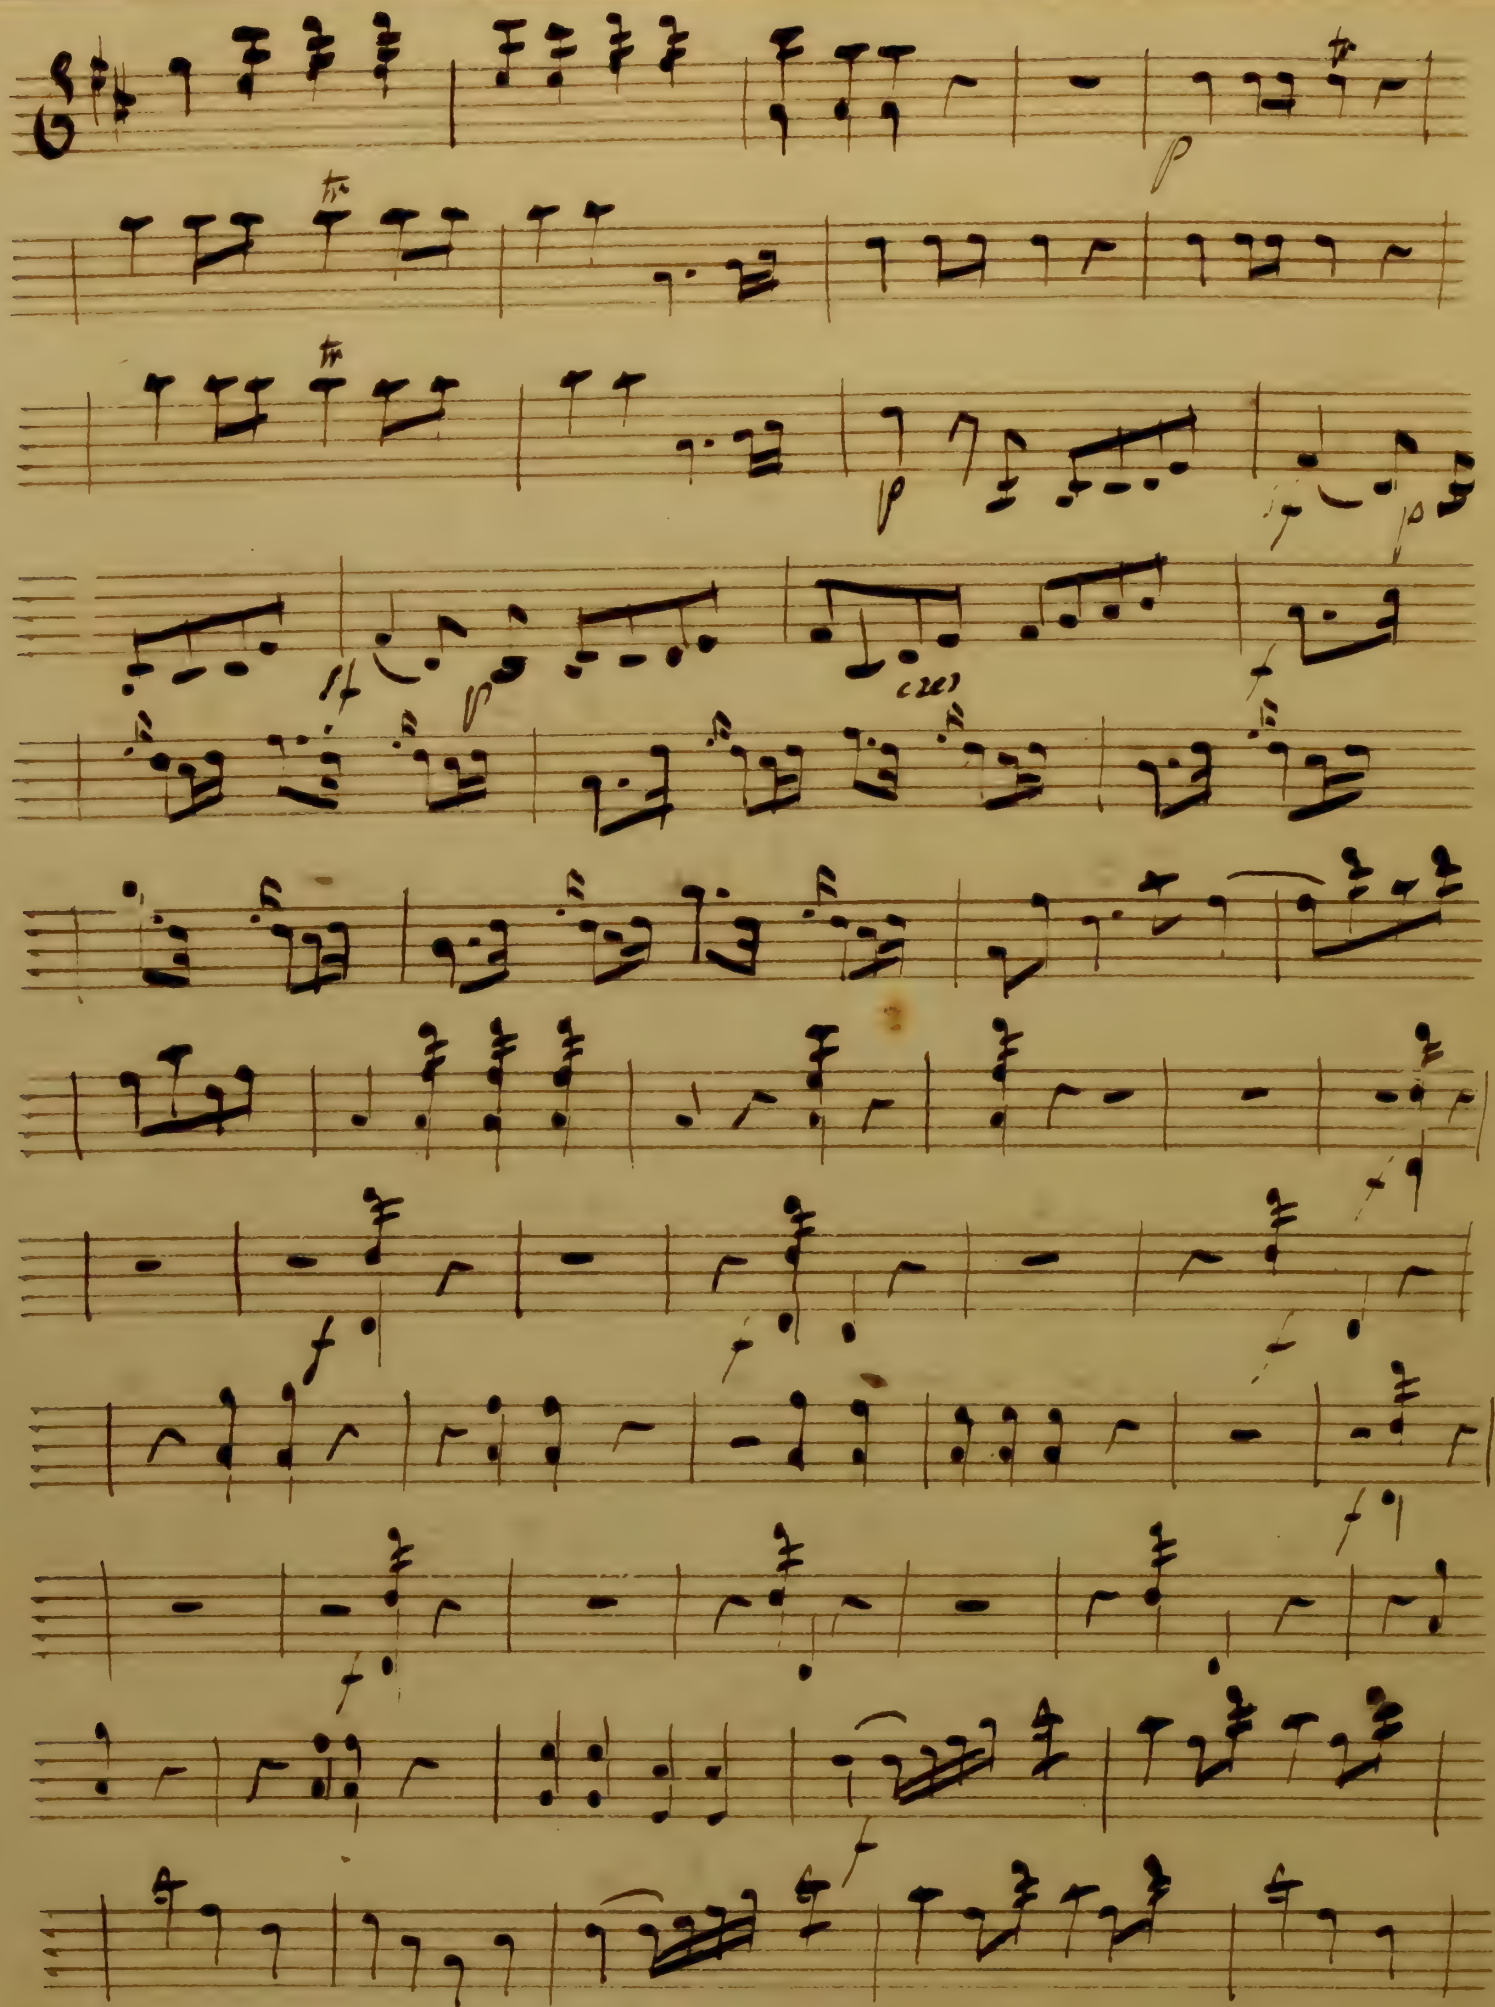 tr
p
tr
tr
p f p
sf p cres f
f
f f f
f
f
f